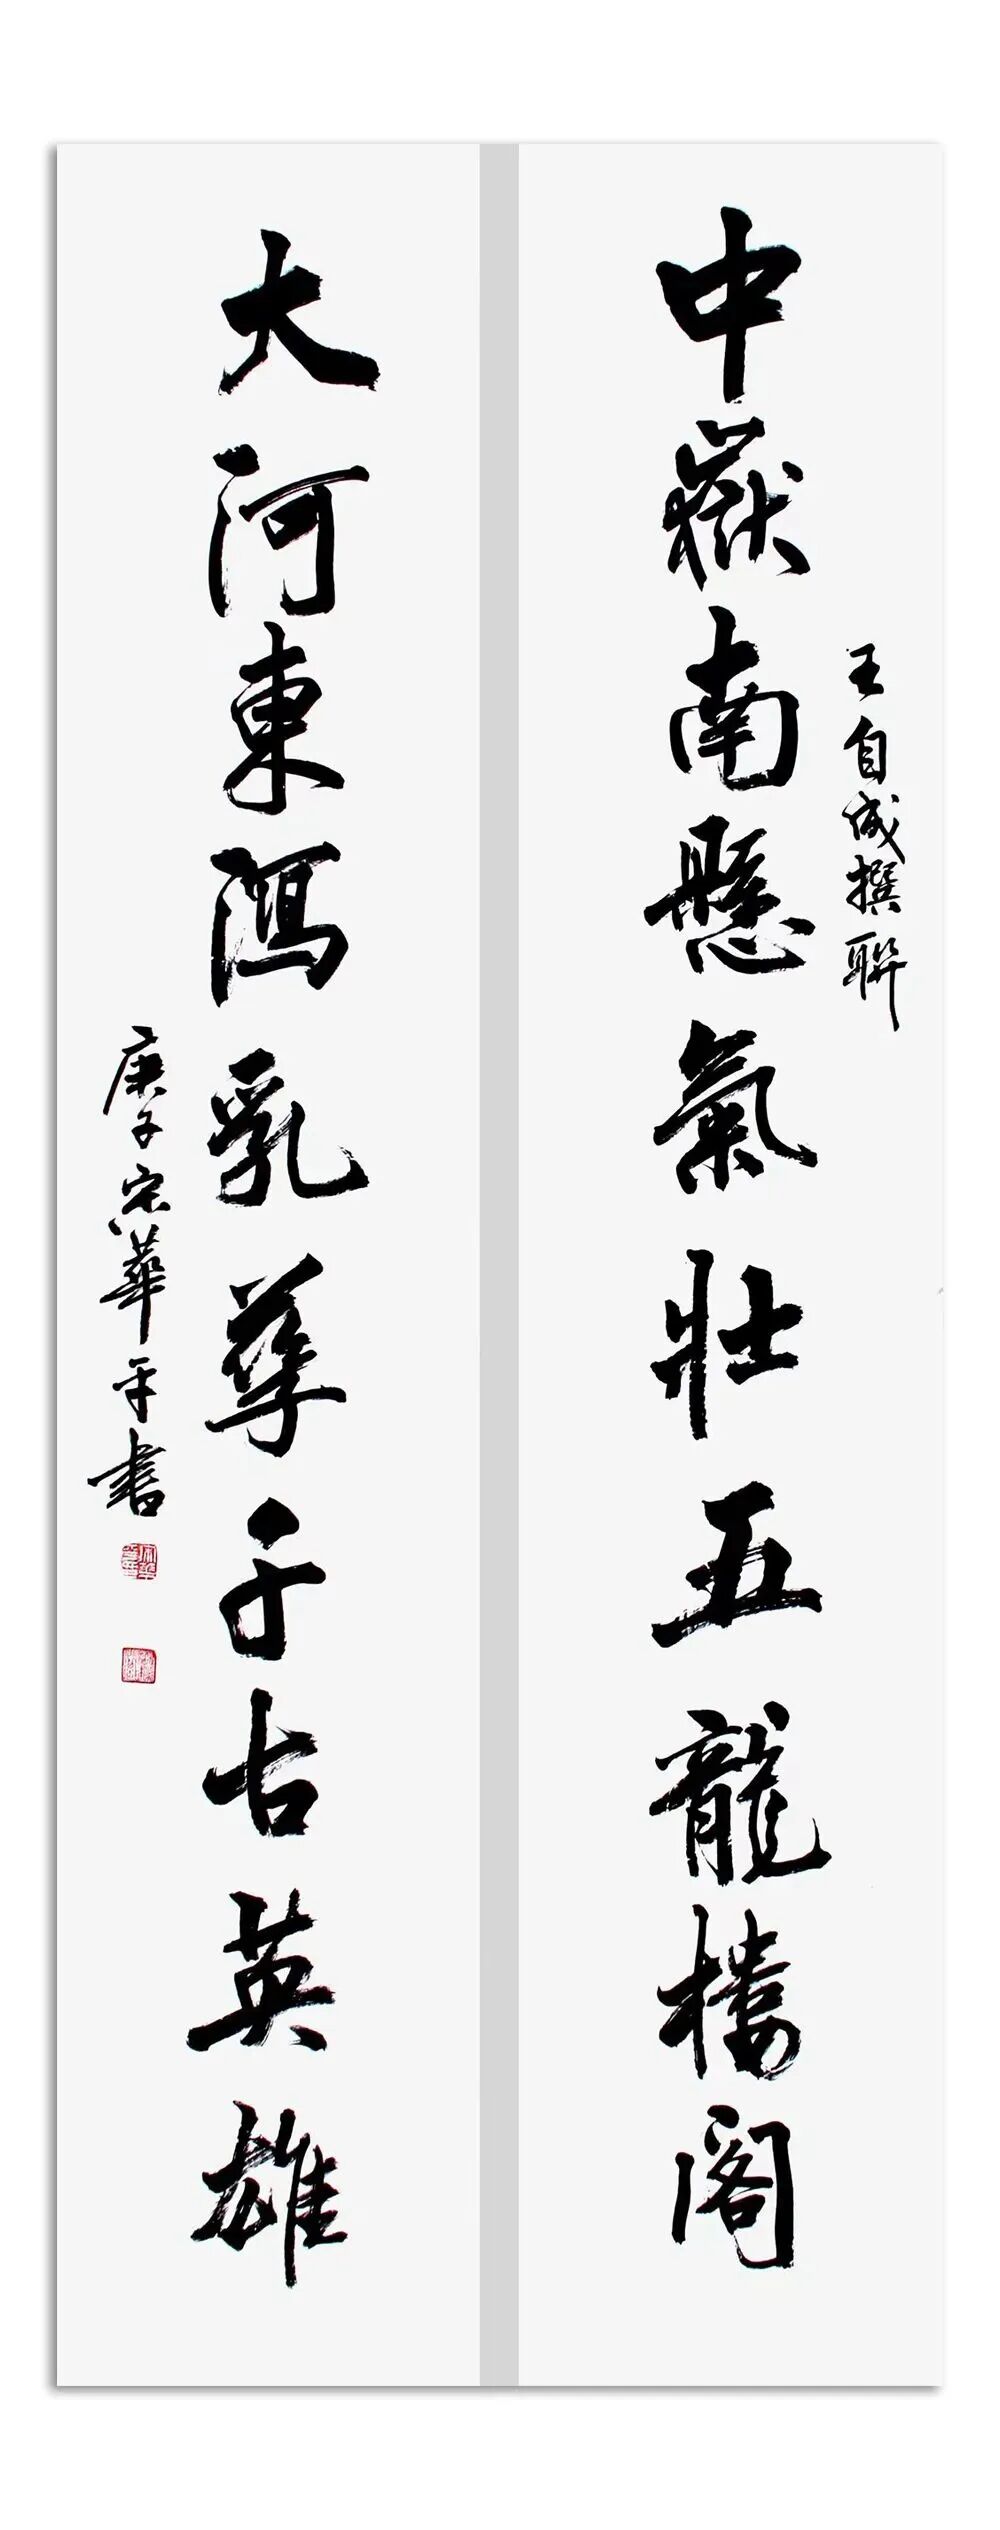 王自成撰聯
中嶽南懸氣壯五龍樓阁
大河東瀉乳孳千古英雄
庚子宋華平書